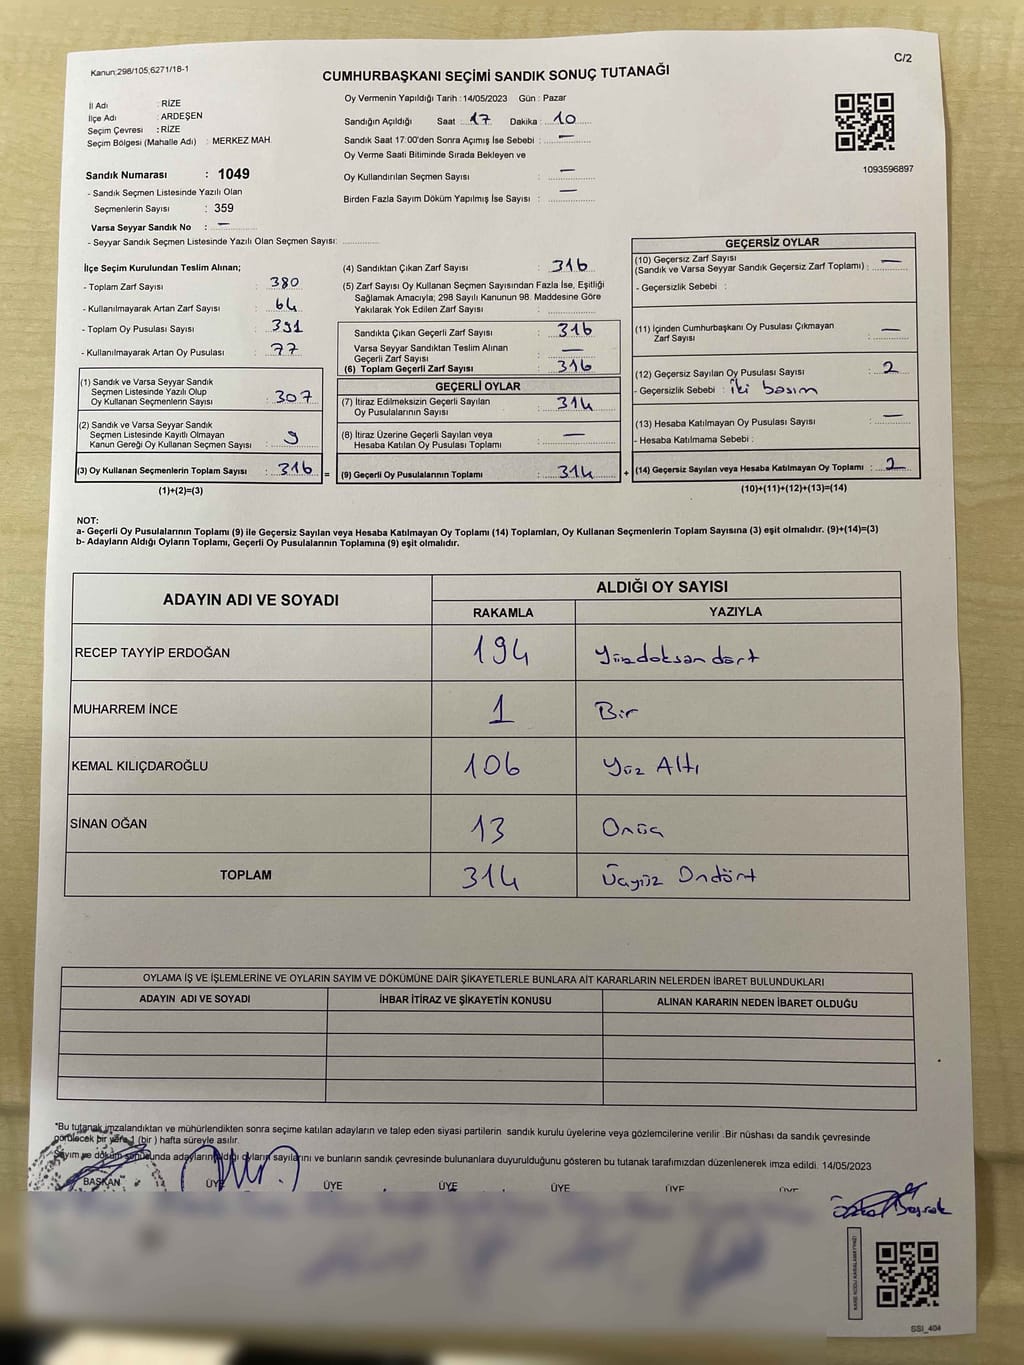 Kanun;298/105;6271/18-1
C/2
CUMHURBAŞKANI SEÇİMİ SANDIK SONUÇ TUTANAĞI
İl Adı : RİZE
İlçe Adı : ARDEŞEN
Seçim Çevresi : RİZE
Seçim Bölgesi (Mahalle Adı) : MERKEZ MAH
Sandık Numarası : 1049
- Sandık Seçmen Listesinde Yazılı Olan
Seçmenlerin Sayısı : 359
Varsa Seyyar Sandık No : —
- Seyyar Sandık Seçmen Listesinde Yazılı Olan Seçmen Sayısı: ............
Oy Vermenin Yapıldığı Tarih : 14/05/2023 Gün : Pazar
Sandığın Açıldığı Saat : 17 Dakika : 10
Sandık Saat 17:00'den Sonra Açımış İse Sebebi : —
Oy Verme Saati Bitiminde Sırada Bekleyen ve
Oy Kullandırılan Seçmen Sayısı : —
Birden Fazla Sayım Döküm Yapılmış İse Sayısı : —
1093596897
İlçe Seçim Kurulundan Teslim Alınan;
- Toplam Zarf Sayısı : 380
- Kullanılmayarak Artan Zarf Sayısı : 64
- Toplam Oy Pusulası Sayısı : 391
- Kullanılmayarak Artan Oy Pusulası : 77
(1) Sandık ve Varsa Seyyar Sandık
Seçmen Listesinde Yazılı Olup
Oy Kullanan Seçmenlerin Sayısı : 307
(2) Sandık ve Varsa Seyyar Sandık
Seçmen Listesinde Kayıtlı Olmayan
Kanun Gereği Oy Kullanan Seçmen Sayısı : 9
(3) Oy Kullanan Seçmenlerin Toplam Sayısı : 316
(1)+(2)=(3)
=
(4) Sandıktan Çıkan Zarf Sayısı : 316
(5) Zarf Sayısı Oy Kullanan Seçmen Sayısından Fazla İse, Eşitliği
Sağlamak Amacıyla; 298 Sayılı Kanunun 98. Maddesine Göre
Yakılarak Yok Edilen Zarf Sayısı : ............
Sandıkta Çıkan Geçerli Zarf Sayısı : 316
Varsa Seyyar Sandıktan Teslim Alınan
Geçerli Zarf Sayısı : —
(6) Toplam Geçerli Zarf Sayısı : 316
GEÇERLİ OYLAR
(7) İtiraz Edilmeksizin Geçerli Sayılan
Oy Pusulalarının Sayısı : 314
(8) İtiraz Üzerine Geçerli Sayılan veya
Hesaba Katılan Oy Pusulası Toplamı : —
(9) Geçerli Oy Pusulalarının Toplamı : 314
+
GEÇERSİZ OYLAR
(10) Geçersiz Zarf Sayısı
(Sandık ve Varsa Seyyar Sandık Geçersiz Zarf Toplamı) : —
- Geçersizlik Sebebi :
(11) İçinden Cumhurbaşkanı Oy Pusulası Çıkmayan
Zarf Sayısı : —
(12) Geçersiz Sayılan Oy Pusulası Sayısı : 2
- Geçersizlik Sebebi : iki basım
(13) Hesaba Katılmayan Oy Pusulası Sayısı : —
- Hesaba Katılmama Sebebi :
(14) Geçersiz Sayılan veya Hesaba Katılmayan Oy Toplamı : 2
(10)+(11)+(12)+(13)=(14)
NOT:
a- Geçerli Oy Pusulalarının Toplamı (9) ile Geçersiz Sayılan veya Hesaba Katılmayan Oy Toplamı (14) Toplamları, Oy Kullanan Seçmenlerin Toplam Sayısına (3) eşit olmalıdır. (9)+(14)=(3)
b- Adayların Aldığı Oyların Toplamı, Geçerli Oy Pusulalarının Toplamına (9) eşit olmalıdır.
ADAYIN ADI VE SOYADI ALDIĞI OY SAYISI
RAKAMLA YAZIYLA
RECEP TAYYİP ERDOĞAN 194 Yüzdoksan dört
MUHARREM İNCE 1 Bir
KEMAL KILIÇDAROĞLU 106 Yüz Altı
SİNAN OĞAN 13 Onüç
TOPLAM 314 Üçyüz Ondört
OYLAMA İŞ VE İŞLEMLERİNE VE OYLARIN SAYIM VE DÖKÜMÜNE DAİR ŞİKAYETLERLE BUNLARA AİT KARARLARIN NELERDEN İBARET BULUNDUKLARI
ADAYIN ADI VE SOYADI İHBAR İTİRAZ VE ŞİKAYETİN KONUSU ALINAN KARARIN NEDEN İBARET OLDUĞU
*Bu tutanak imzalandıktan ve mühürlendikten sonra seçime katılan adayların ve talep eden siyasi partilerin sandık kurulu üyelerine veya gözlemcilerine verilir .Bir nüshası da sandık çevresinde
görülecek bir yere 1 (bir ) hafta süreyle asılır.
Sayım ve döküm sonucunda adayların aldığı oyların sayılarını ve bunların sandık çevresinde bulunanlara duyurulduğunu gösteren bu tutanak tarafımızdan düzenlenerek imza edildi. 14/05/2023
BAŞKAN ÜYE ÜYE ÜYE ÜYE ÜYE ÜYE
KARE KODU KARALAMAYINIZ!
SSI_404